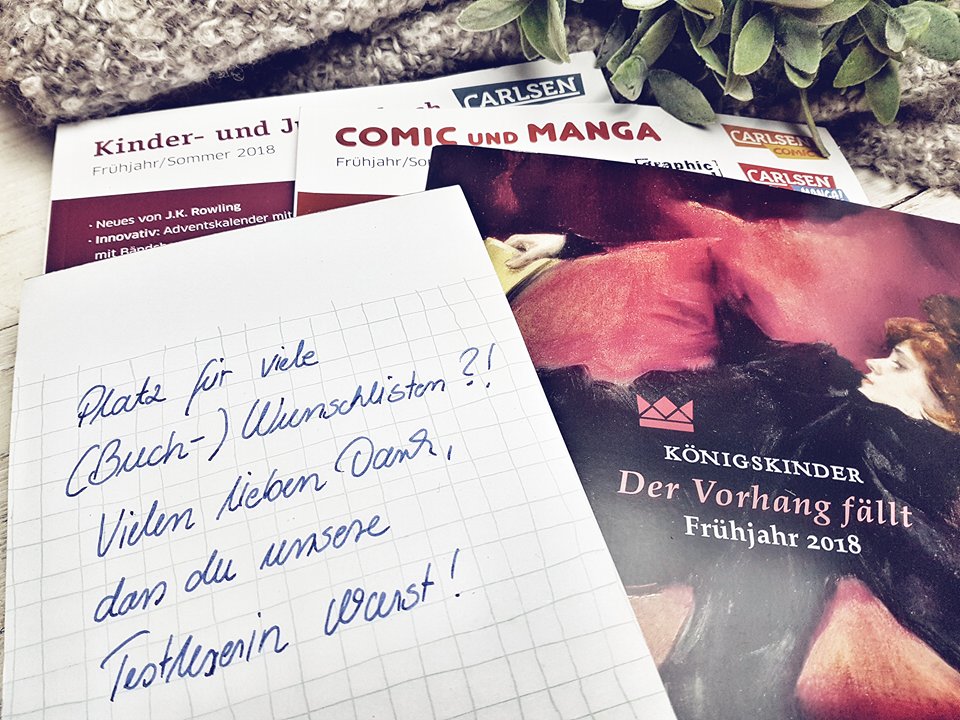 Kinder- und Ju
CARLSEN
Frühjahr/Sommer 2018
· Neues von J.K. Rowling
· Innovativ: Adventskalender mit
mit
COMIC UND MANGA
CARLSEN
COMIC
Frühjahr/So
graphic
CARLSEN
MANGA!
Platz für viele
(Buch-) Wunschlisten?!
Vielen lieben Dank,
dass du unsere
Testleserin warst!
KÖNIGSKINDER
Der Vorhang fällt
Frühjahr 2018